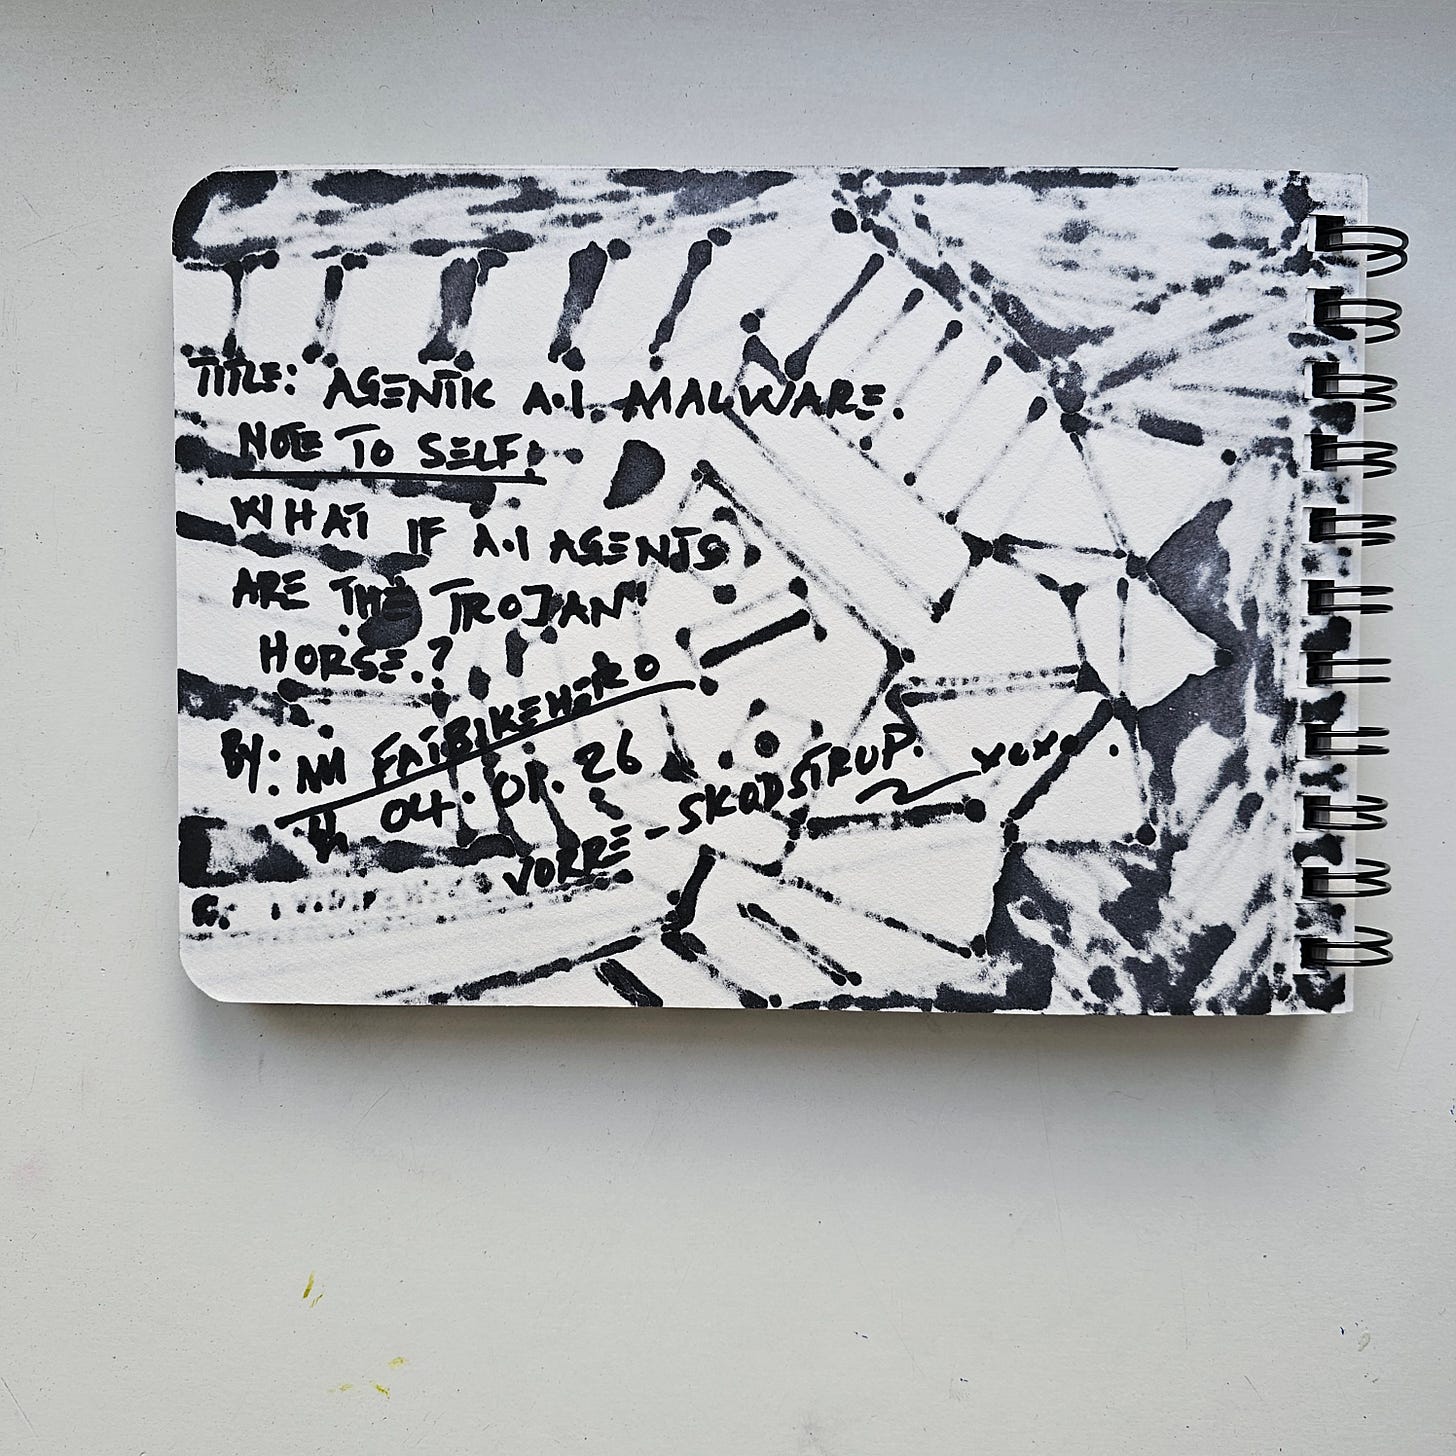 TITLE: AGENTIC A.I. MALWARE.
NOTE TO SELF:
WHAT IF A.I AGENTS
ARE THE TROJAN"
HORSE.?
BY: FATBIKEHERO
04.01.26
JORRE-SKODSTRUP.
xoxo.